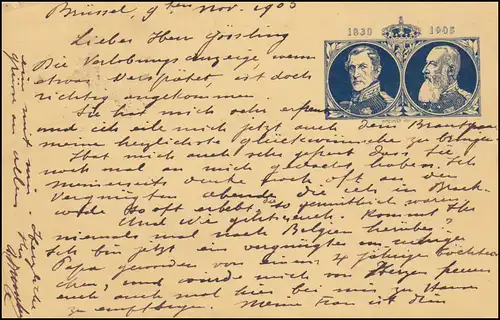 Brüssel, 9ten Nov. 1905
Lieber Herr Gössling
1830 1905
Die Verlobungsanzeige, wenn
etwas verspätet, ist doch
richtig angekommen.
Sie hat mich sehr erfreut
und ich eile mich jetzt auch dem Brautpaar
meine herzlichste Glückwünsche zu bringen.
Hat mich auch sehr gefreut das Sie
noch mal an mich gedacht haben. Ich
meinerseits denke noch oft an den
vergnügten Abende die ich in Brack-
wede so oft erlebt so gemütlich waren.
Und wie geht's euch. Kommt Ihr
niemals mal nach Belgien herüber.
Ich bin jetzt ein vergnügter
Papa geworden von einem 4 jährige Töchter-
chen, und würde mich von Herzen freuen
euch auch mal hier bei mir zu Hause
zu empfangen. Meine Frau ist dem
ein mit mir
grüssen an allen
Herzlich